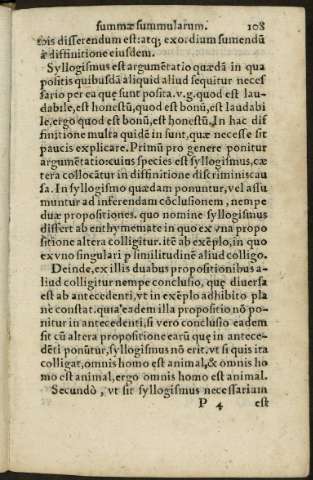 summæ summularum. 108
tois disserendum est: atq; exordium sumendũ
à diffinitione eiusdem.
Syllogismus est argumẽtatio quædã in qua
positis quibusdã aliquid aliud sequitur neces
sario per ea que sunt posita. v.g. quod est lau-
dabile, est honestũ, quod est bonũ, est laudabi
le, ergo quod est bonũ, est honestũ. In hac dif
finitione multa quidẽ in sunt, quæ necesse sit
paucis explicare. Primũ pro genere ponitur
argumẽtatio: cuius species est syllogismus, cæ
tera collocãtur in diffinitione discriminis cau
sa. In syllogismo quædam ponuntur, vel assu
muntur ad inferendam cõclusionem, nempe
duæ propositiones. quo nomine syllogismus
differt ab enthymemate in quo ex vna propo
sitione altera colligitur. itẽ ab exẽplo, in quo
ex vno singulari p similitudinẽ aliud colligo.
Deinde, ex illis duabus propositionibus a-
liud colligitur nempe conclusio, quę diuersa
est ab antecedenti, vt in exẽplo adhibito pla
ne constat. quia eadem illa propositio nõ po-
nitur in antecedenti, si vero conclusio eadem
sit cũ altera propositione earũ quę in antece-
dẽti ponũtur, syllogismus nõ erit. vt si quis ita
colligat, omnis homo est animal, & omnis ho
mo est animal, ergo omnis homo est animal.
Secundò, vt sit syllogismus necessariam
P 4 est